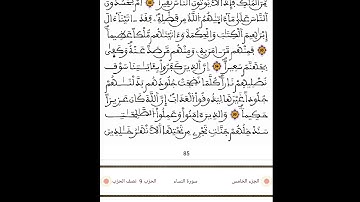 مِّنَ الْمُلْكِ فَإِذاً لَّا يُوتُونَ النَّاسَ نَقِيراً اَمْ يَحْسُدُونَ
النَّاسَ عَلَىٰ مَا ءَاتَىٰهُمُ اللَّهُ مِن فَضْلِهِ فَقَدَ ـاتَيْنَا ءَالَ
إِبْرَٰهِيمَ الْكِتَٰبَ وَالْحِكْمَةَ وَءَاتَيْنَٰهُم مُّلْكاً عَظِيماً
فَمِنْهُم مَّنَ ـامَنَ بِهِ وَمِنْهُم مَّن صَدَّ عَنْهُ وَكَفَىٰ
بِجَهَنَّمَ سَعِيراً اِنَّ الَّذِينَ كَفَرُواْ بِـَٔايَٰتِنَا سَوْفَ
نُصْلِيهِمْ نَاراً كُلَّمَا نَضِجَتْ جُلُودُهُم بَدَّلْنَٰهُمْ
جُلُوداً غَيْرَهَا لِيَذُوقُواْ الْعَذَابَ إِنَّ اللَّهَ كَانَ عَزِيزاً
حَكِيماً وَالَّذِينَ ءَامَنُواْ وَعَمِلُواْ الصَّٰلِحَٰتِ
سَنُدْخِلُهُمْ جَنَّٰتٍ تَجْرِي مِن تَحْتِهَا الَانْهَٰرُ خَٰلِدِينَ
85
الجزء الخامس سورة النساء الحزب 9 نصف الحزب